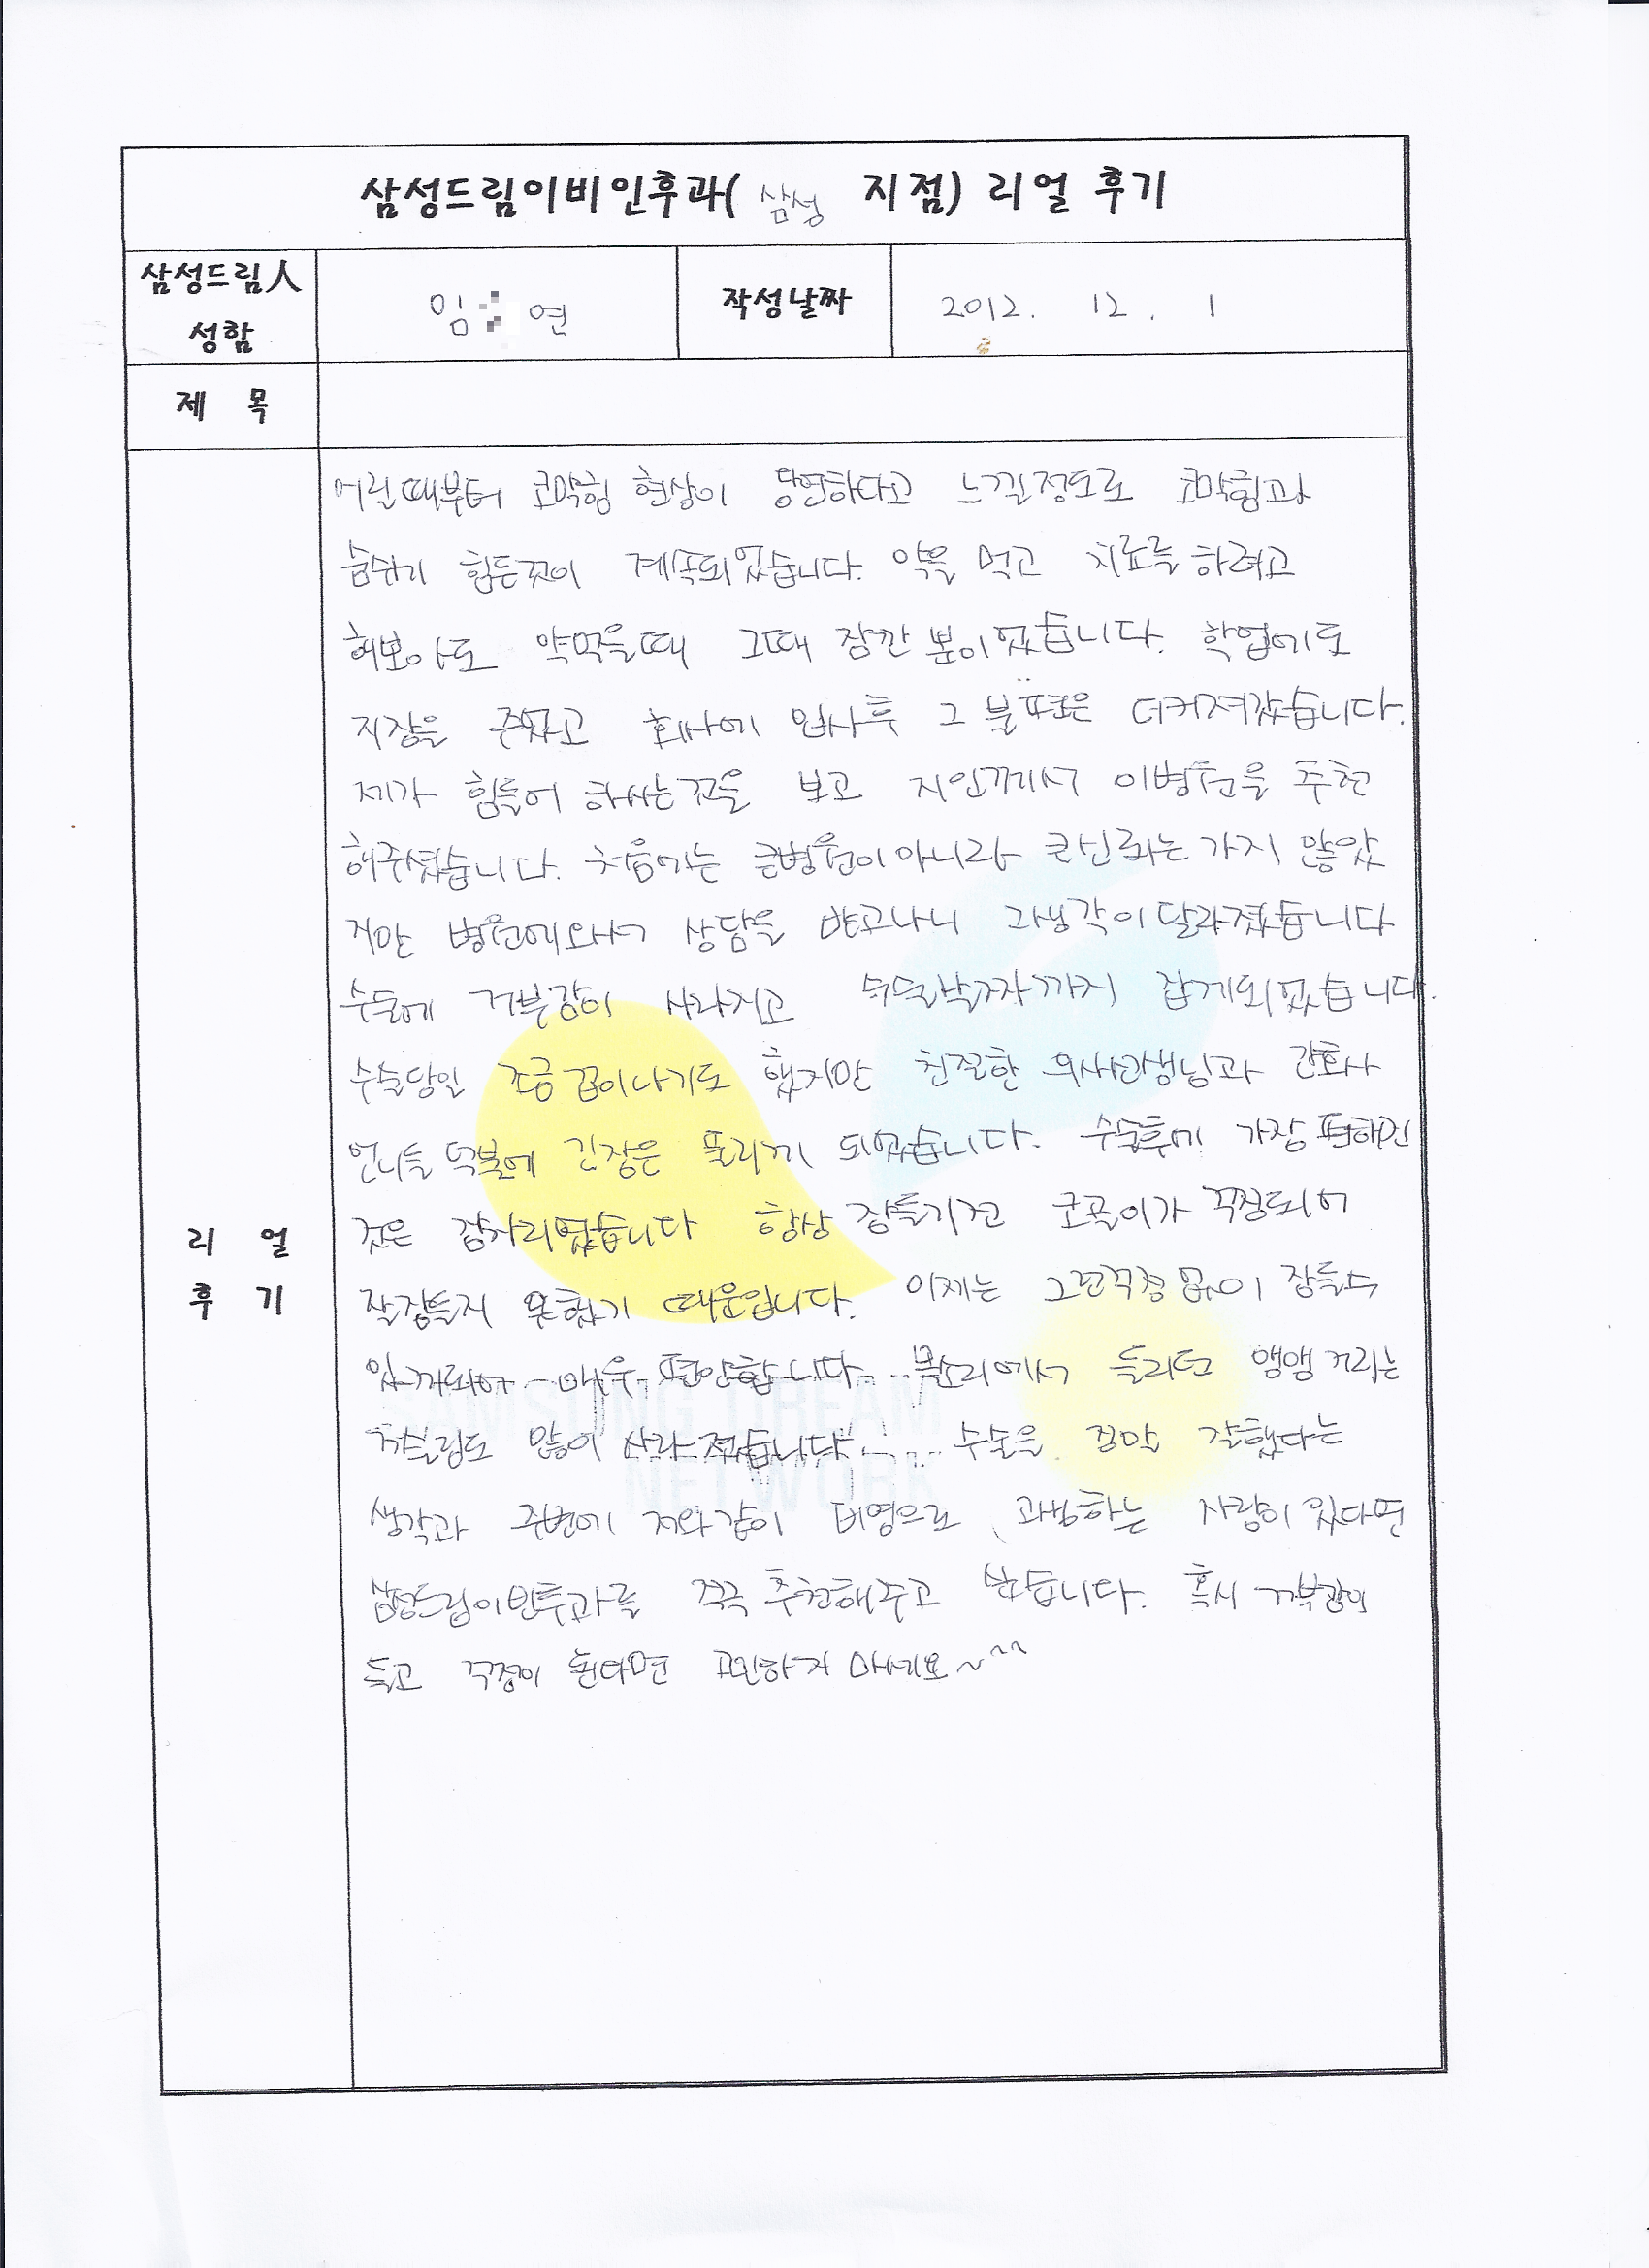 삼성드림이비인후과( 삼성 지점) 리얼 후기
삼성드림人
성함
임 연
작성날짜
2012. 12. 1
제 목
어린때부터 코막힘 현상이 당연하다고 느낄정도로 코막힘과
숨쉬기 힘든것이 계속되었습니다. 약을 먹고 치료를 하려고
해보아도 약먹을때 그때 잠깐 뿐이었습니다. 학업에도
지장을 주었고 회사에 입사후 그 불편은 더커져갔습니다.
제가 힘들어 하시는것을 보고 지인께서 이병원을 추천
해주셨습니다. 처음에는 큰병원이 아니라 큰신뢰는 가지 않았
지만 병원에와서 상담을 받고나니 그생각이 달라졌습니다
수술에 거부감이 사라지고 수술날짜까지 잡게되었습니다.
수술당일 조금 겁이나기도 했지만 친절한 의사선생님과 간호사
언니들 덕분에 긴장은 풀리게 되었습니다. 수술후에 가장 편해진
것은 잠자리였습니다 항상 잠들기전 코골이가 걱정되어
잘잠들지 못했기 때문입니다. 이제는 그런걱정 없이 잠들수
있게되어 매우 편안합니다. 목소리에서 들리던 앵앵 거리는
거슬림도 많이 사라졌습니다. 수술을 정말 잘했다는
생각과 주변에 저와같이 비염으로 고생하는 사람이 있다면
삼성드림이비인후과를 적극 추천해주고 싶습니다. 혹시 거부감이
들고 걱정이 된다면 고민하지 마세요~^^
리 얼
후 기
SAMSUNG DREAM
NETWORK